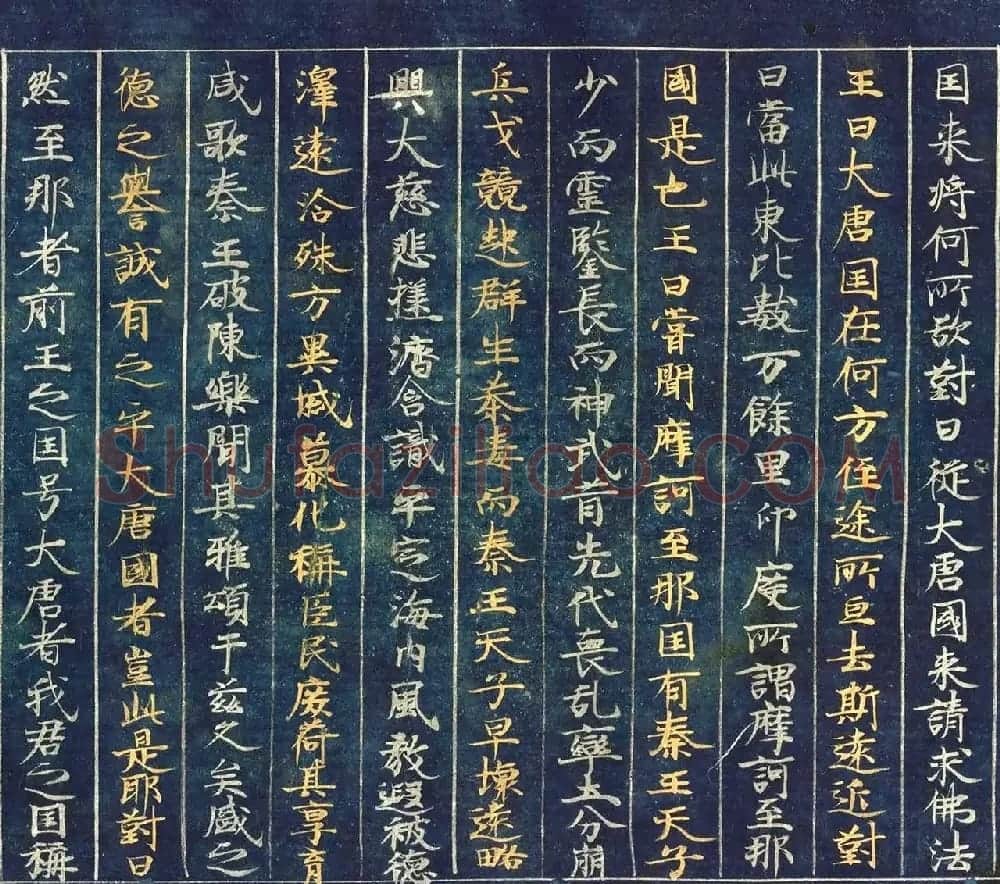 囯来将何所欲對曰従大唐國来請求佛法
王曰大唐囯在何方経途所亘去斯遠近對
曰當此東北數万餘里印度所謂摩訶至那
國是也王曰嘗聞摩訶至那囯有秦王天子
少而霊鑒長而神武昔先代喪乱率土分崩
兵戈競起群生荼毒而秦王天子早懐遠略
興大慈悲拯濟含識平定海内風教遐被徳
澤遠洽殊方異域慕化稱臣民庶荷其享育
咸歌秦王破陳樂聞其雅頌于茲久矣盛之
徳之譽誠有之乎大唐國者豈此是耶對曰
然至那者前王之囯号大唐者我君之囯稱
Shufaziliao.COM